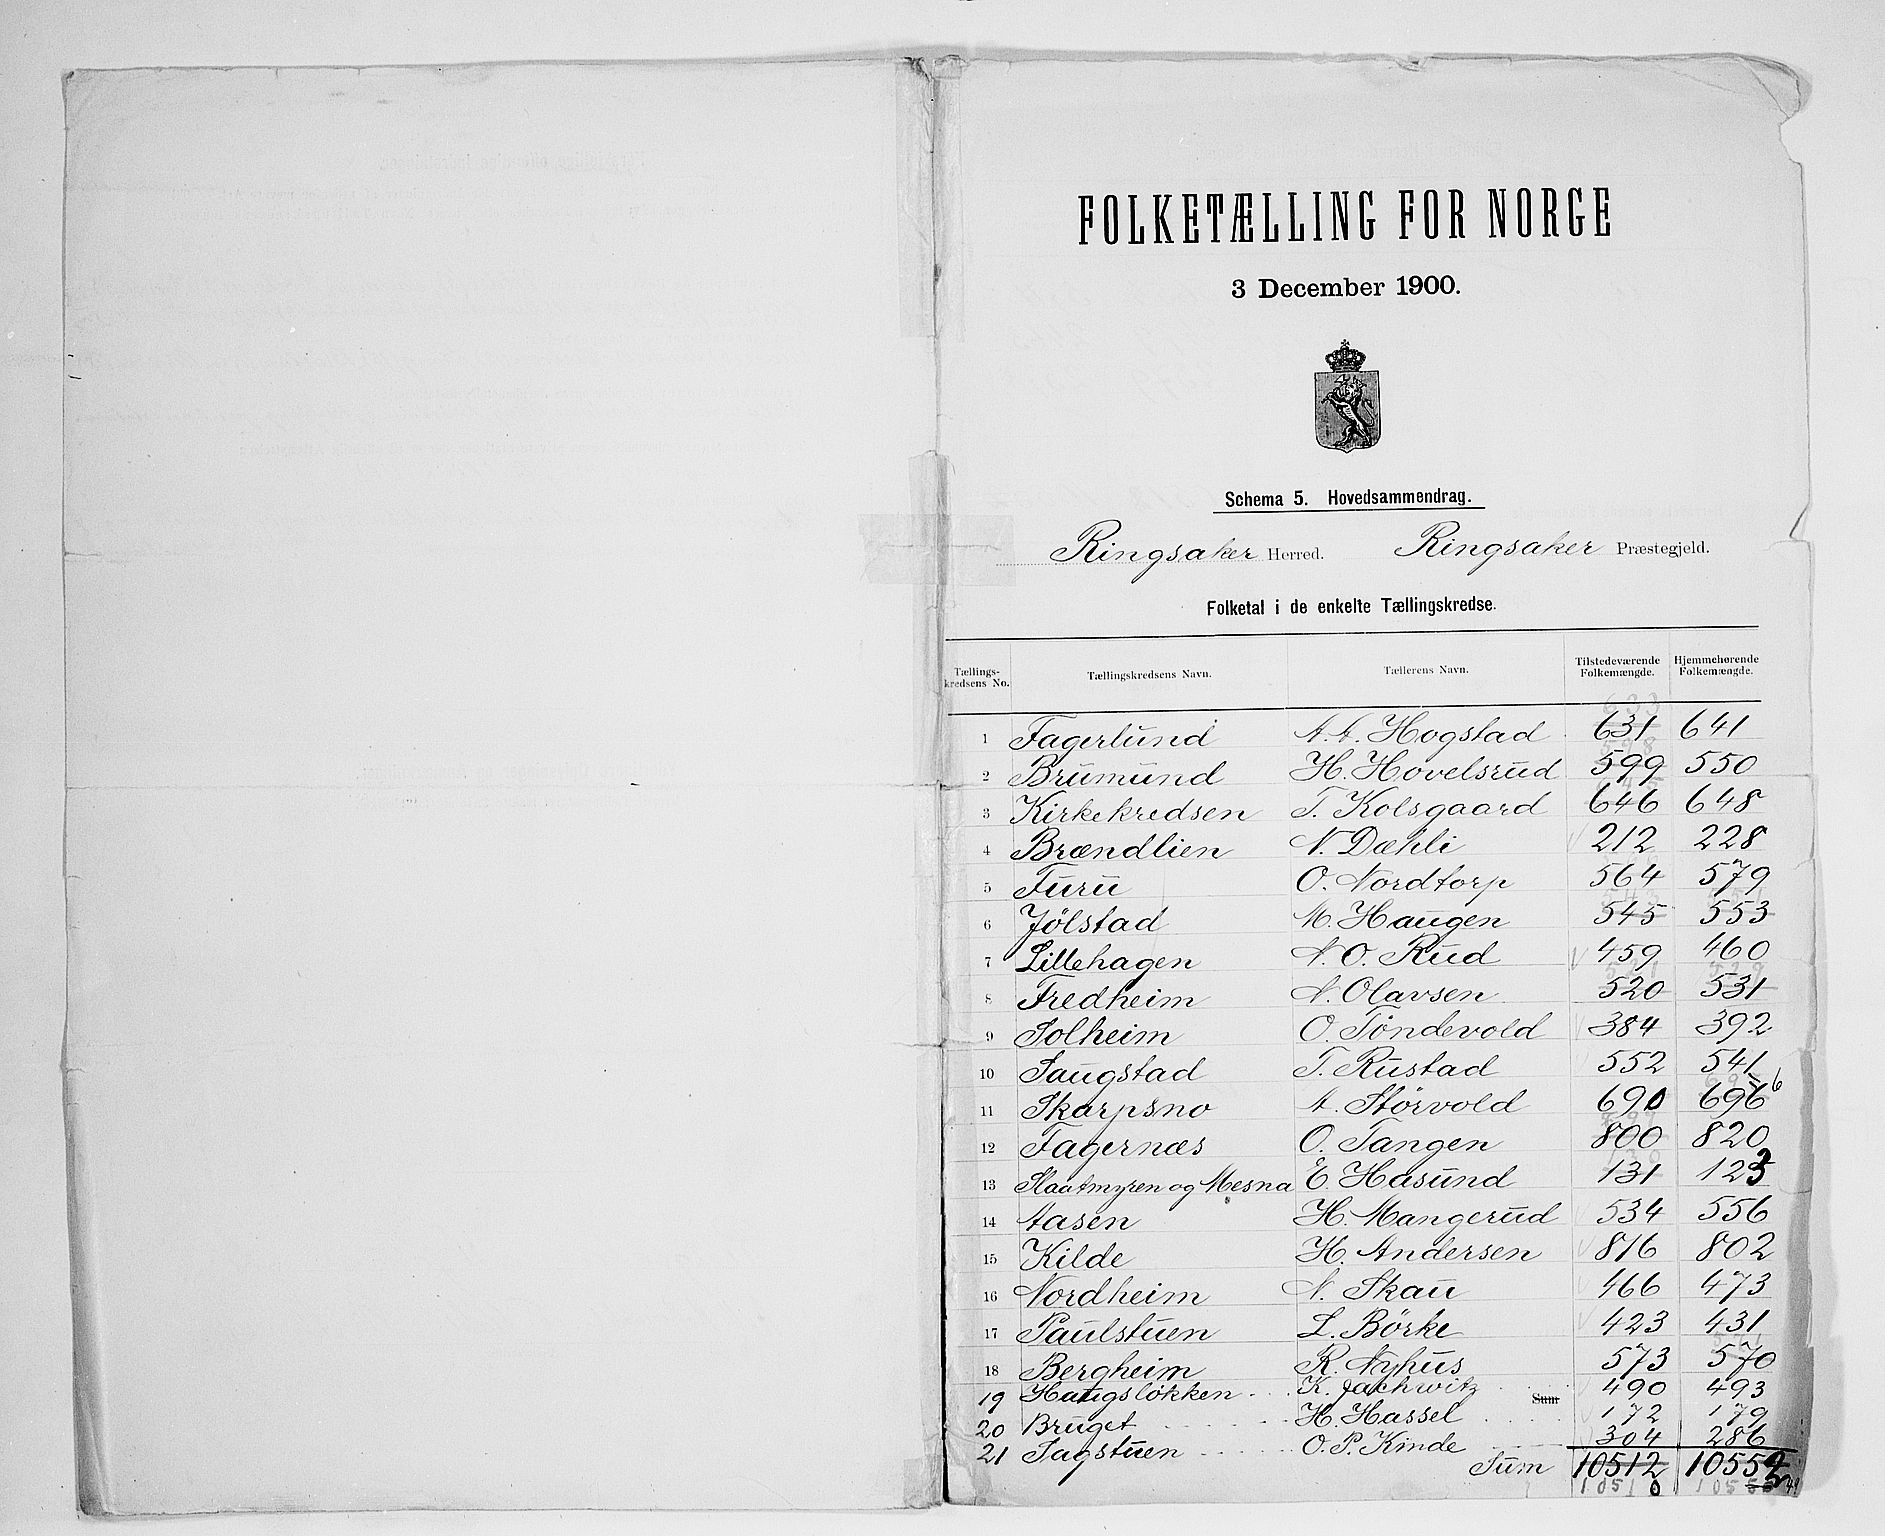 FOLKETÆLLING FOR NORGE
3 December 1900.
Schema 5. Hovedsammendrag.
Ringsaker Herred. Ringsaker Præstegjeld.
Folketal i de enkelte Tællingskredse.
Tællings-kredsens No. Tællingskredsens Navn. Tællerens Navn. Tilstedeværende Folkemængde. Hjemmehørende Folkemængde.
633
1 Fagerlund A. A. Hogstad 631 641
598
2 Brumund H. Hovelsrud 599 550
3 Kirkekredsen T. Kolsgaard 646 648
4 Brændlien N. Dæhli 212 228
5 Furu O. Nordtorp 564 579
6 Jölstad M. Haugen 545 553
7 Lillehagen N. O. Rud 459 460
8 Fredheim N. Olavsen 520 531
9 Solheim O. Töndevold 384 392
10 Saugstad T. Rustad 552 541
11 Skarpsno A. Störvold 690 696 6
12 Fagernæs O. Tangen 800 820
13 Slaatmyren og Mesna E. Hasund 131 123
14 Aasen H. Mangerud 534 556
15 Kilde H. Andersen 816 802
16 Nordheim N. Skau 466 473
17 Paulstuen L. Börke 423 431
18 Bergheim R. Nyhus 573 570
19 Haugslökken K. Jachwitz Sum 490 493
20 Bruget H. Hassel 172 179
21 Sagstuen O. P. Kinde 304 286
Sum 10512 10552
10510